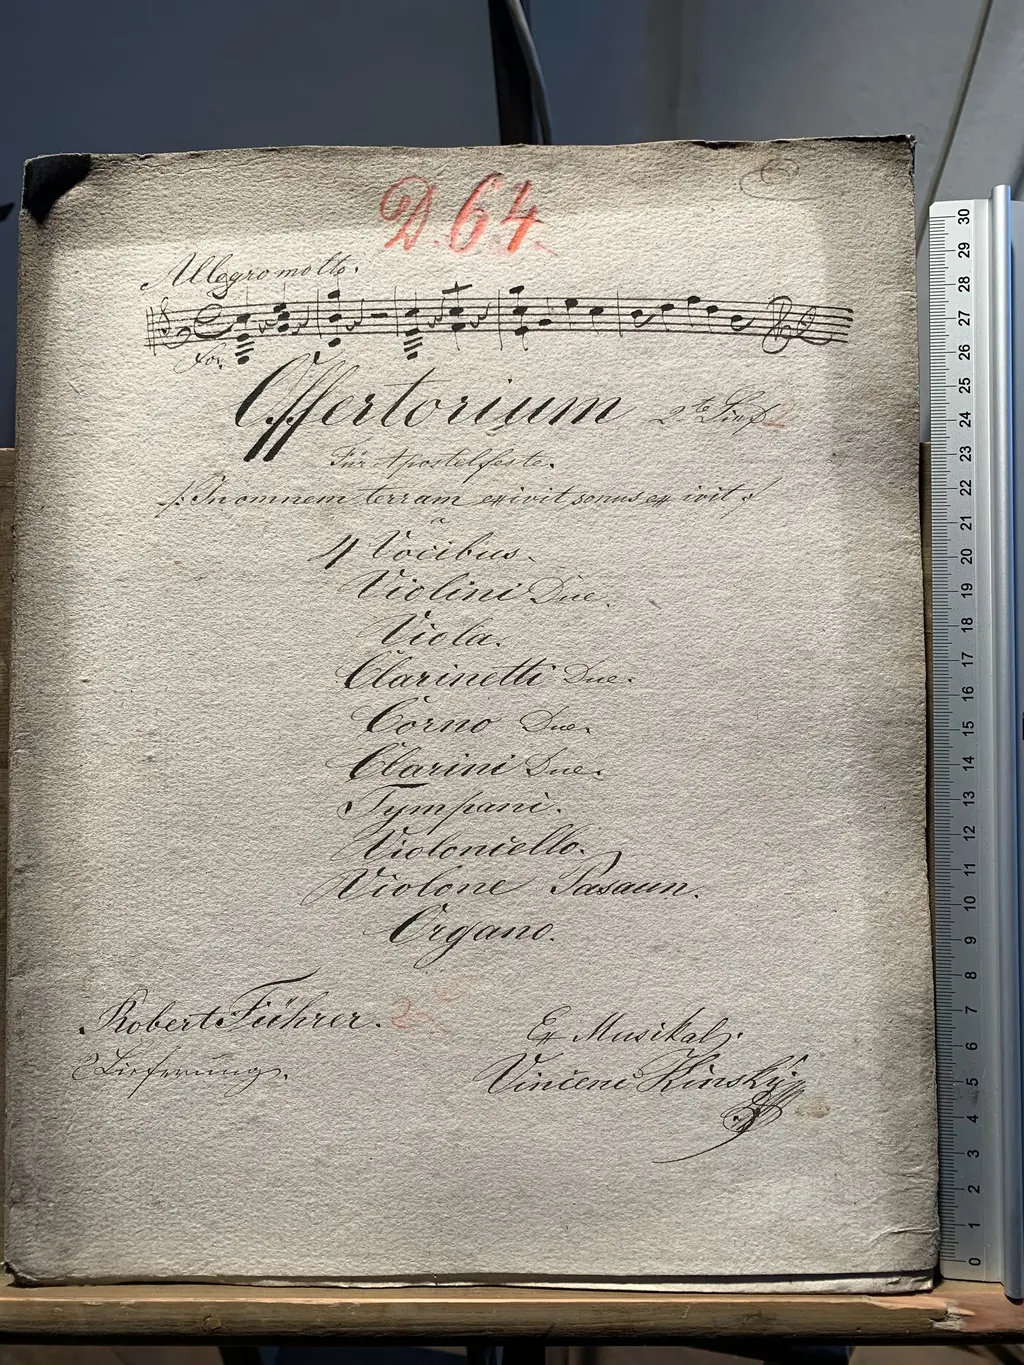 D. 64.
Allegro molto.
for.
Offertorium 2te
Für Apostelfeste.
/: In omnem terram exivit sonus ex ivit :/
4 Vocibus.
Violini Due.
Viola.
Clarinetti Due.
Corno Due.
Clarini Due.
Tympani.
Violoniello.
Violone Pasaun.
Organo.
Robert Führer.
Ex Musikal:
2 Lieferung.
Vinceni Kinsky
30
29
28
27
26
25
24
23
22
21
20
19
18
17
16
15
14
13
12
11
10
9
8
7
6
5
4
3
2
1
0